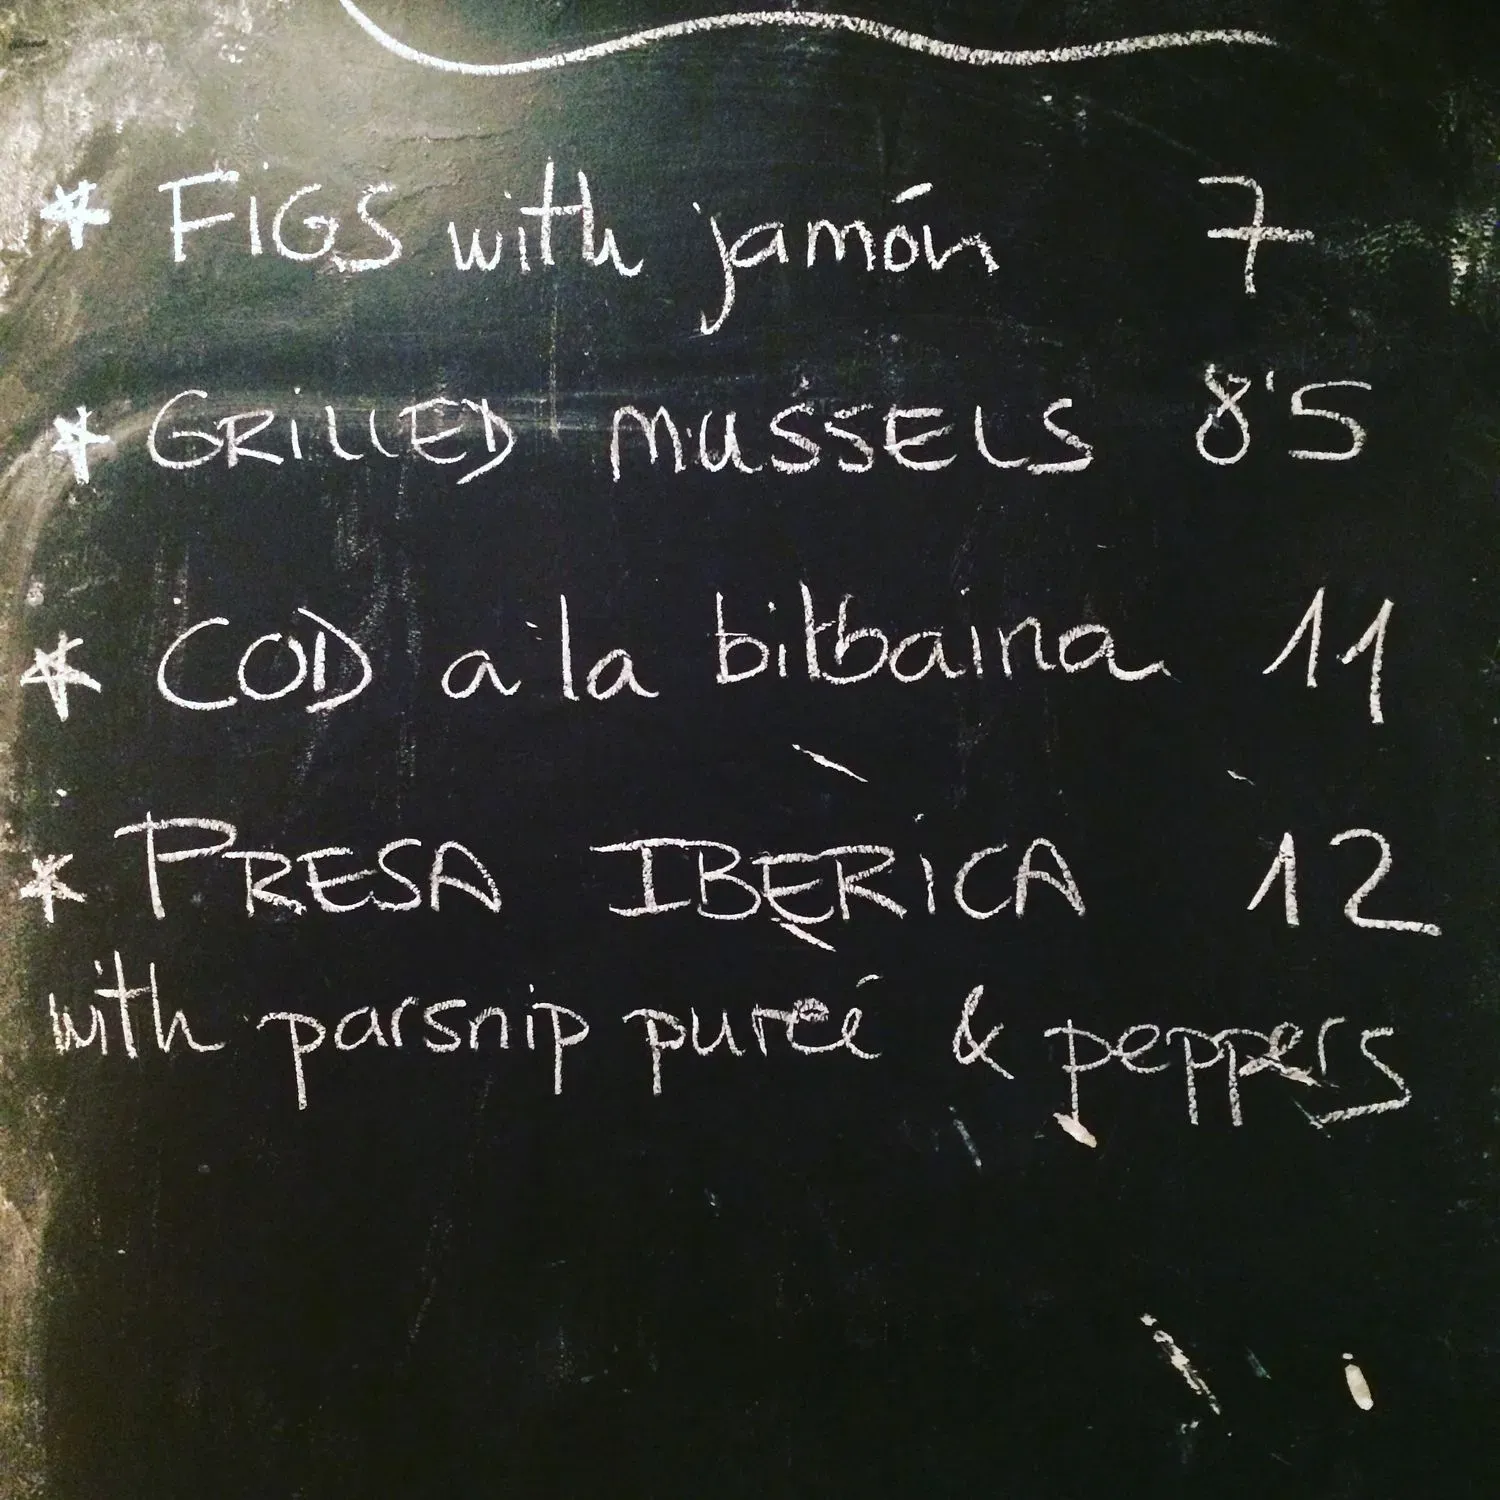 * FIGS with jamón 7
* GRILLED MUSSELS 8'5
* COD a la bilbaina 11
* PRESA IBÈRICA 12
with parsnip pureé & peppers